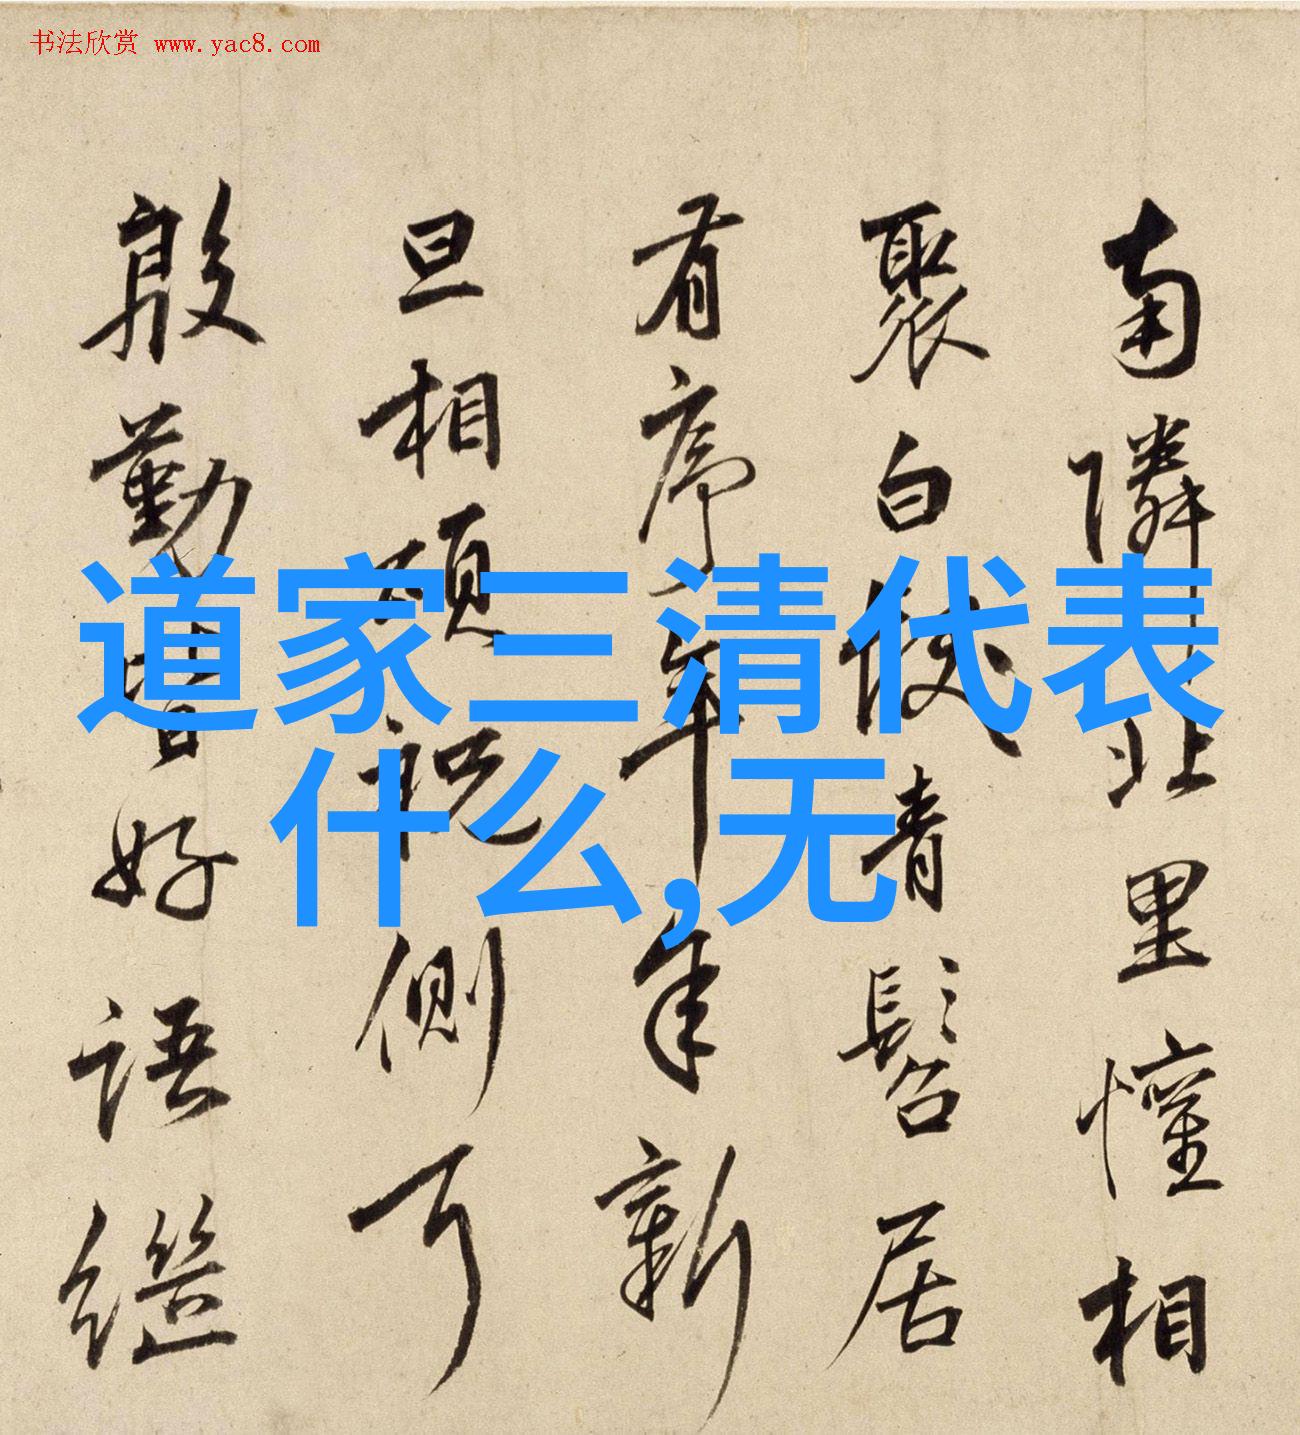 书法欣赏 www.yac8.com
道家三清代表
什么,无
南隣北里懽相
聚白
青髫居
有序年年新
旦相
侧可
殷勤皆好语继